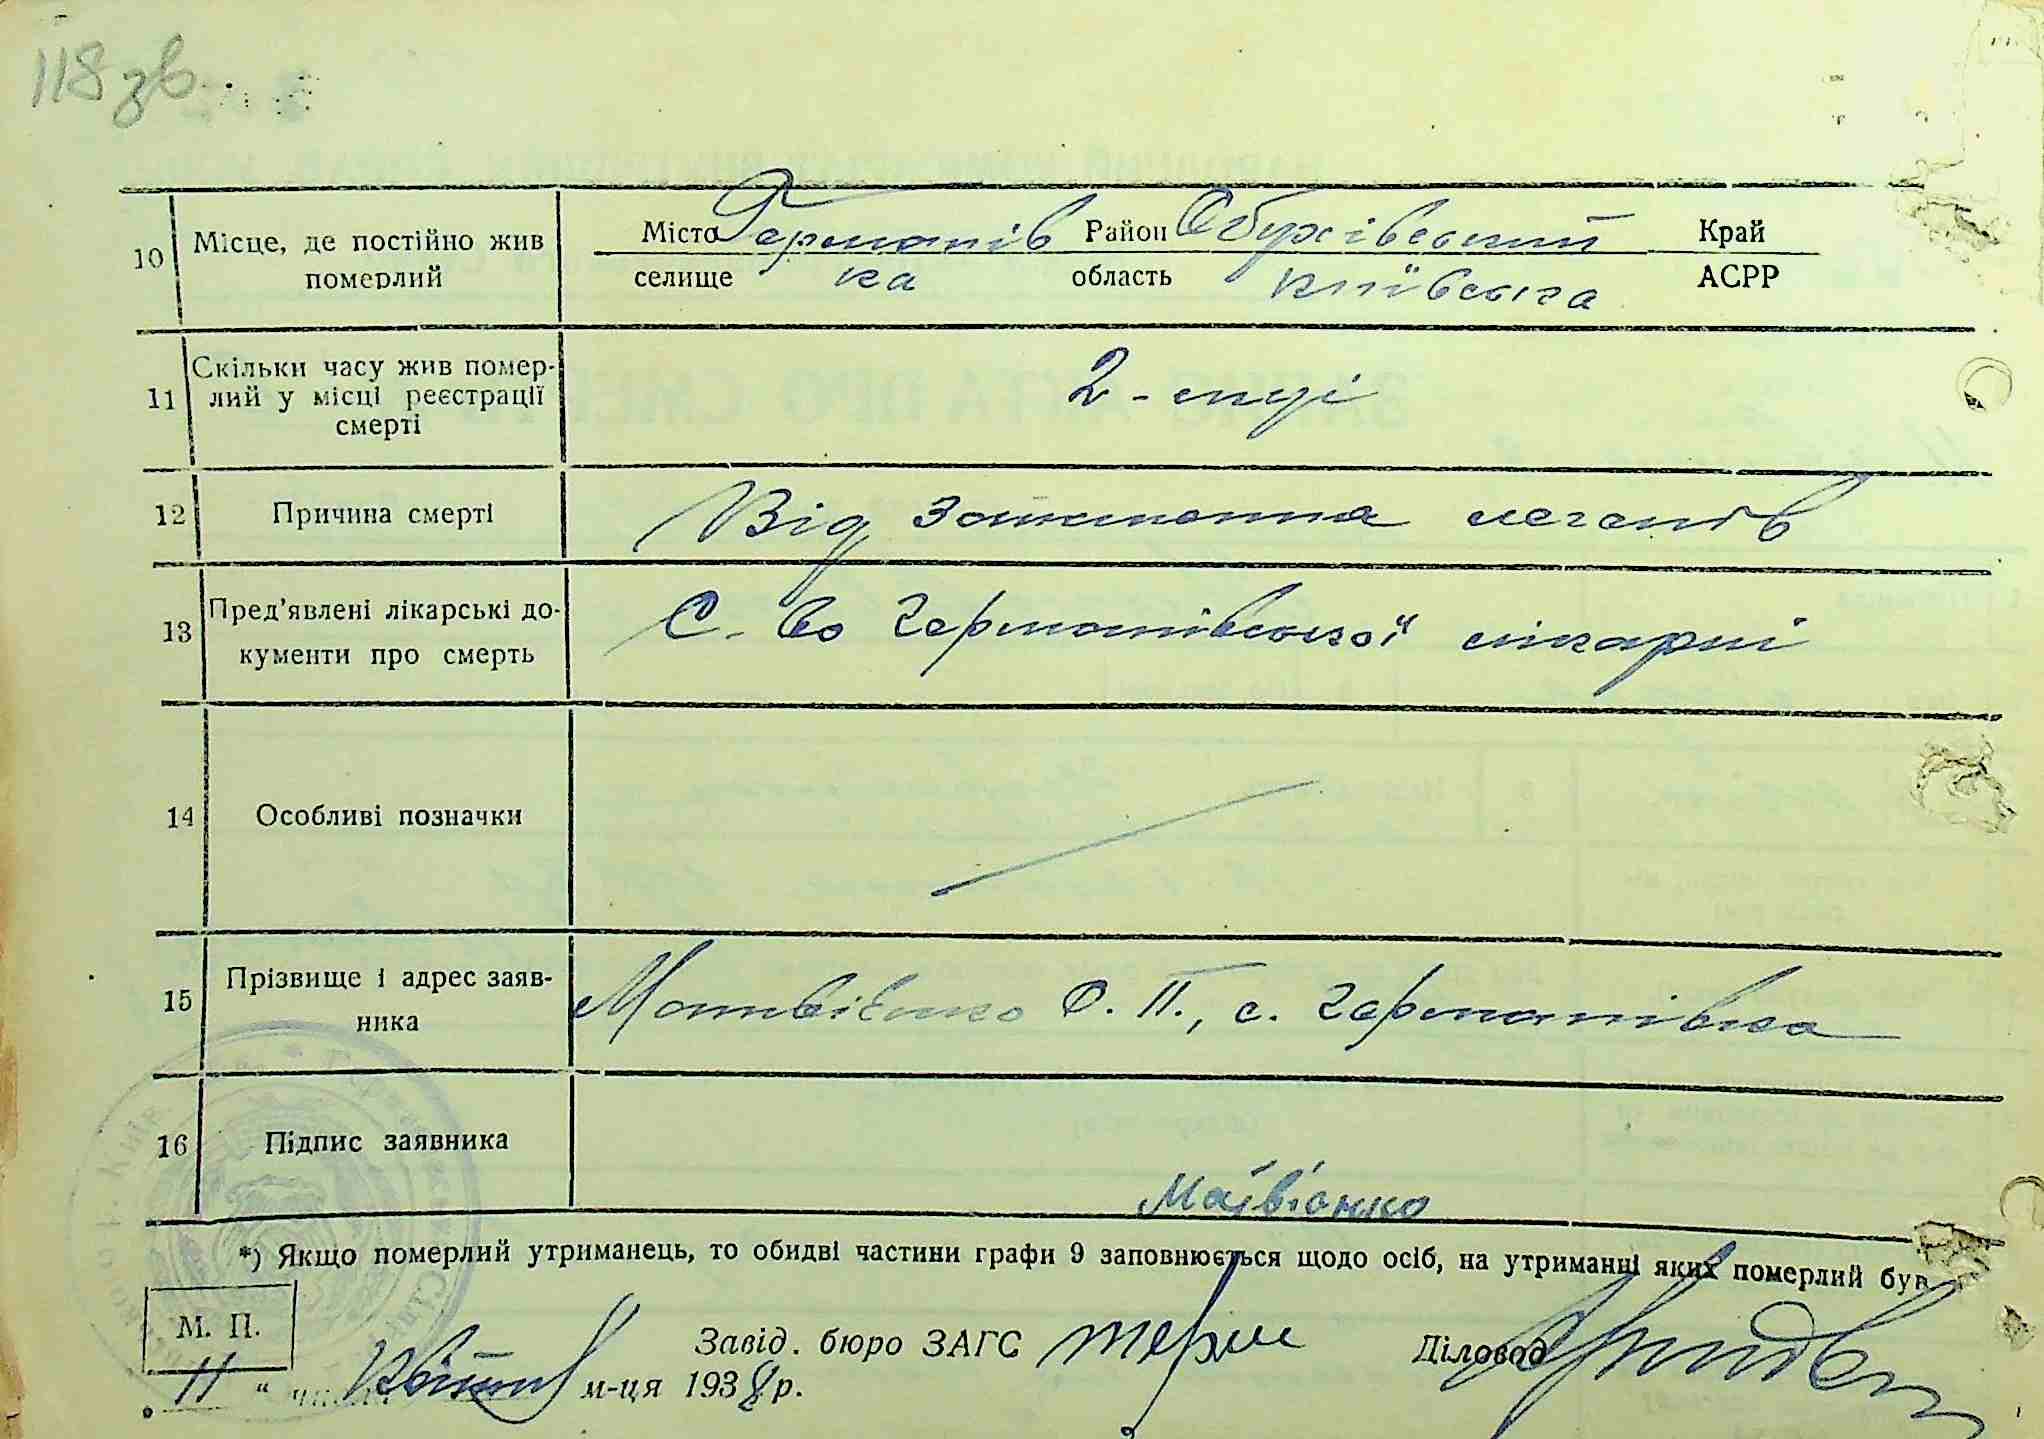 118 зв.
10 Місце, де постійно жив померлий
Місто Германів Район Обухівський Край
селище ка область київська АСРР
11 Скільки часу жив помер-
лий у місці реєстрації
смерті
2 -
12 Причина смерті Від запалення легенів
13 Пред'явлені лікарські до-
кументи про смерть
С-во Германівської лікарні
14 Особливі позначки
15 Прізвище і адрес заяв-
ника
Матвієнко О. П., с. Германівка
16 Підпис заявника
Матвієнко
*) Якщо померлий утриманець, то обидві частини графи 9 заповнюється щодо осіб, на утриманні яких померлий був
М. П.
Завід. бюро ЗАГС Діловод
„ 11 " числа квітня м-ця 1938 р.